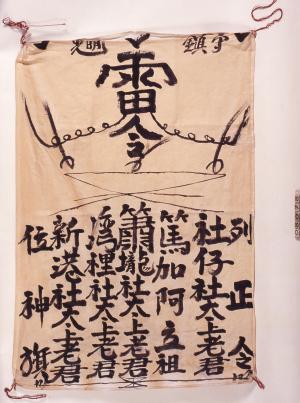 光明
鎮守
雷令
列正
社仔社太上老君
篤加阿立祖
蕭壠社太上老君
灣裡社太上老君
新港社太上老君
位神旗